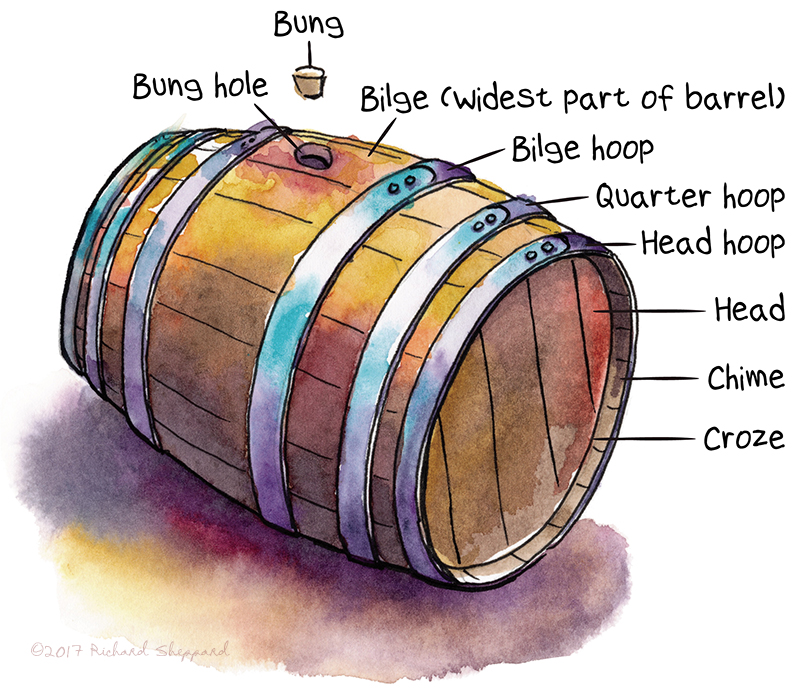 Bung
Bung hole
Bilge (widest part of barrel)
Bilge hoop
Quarter hoop
Head hoop
Head
Chime
Croze
©2017 Richard Sheppard